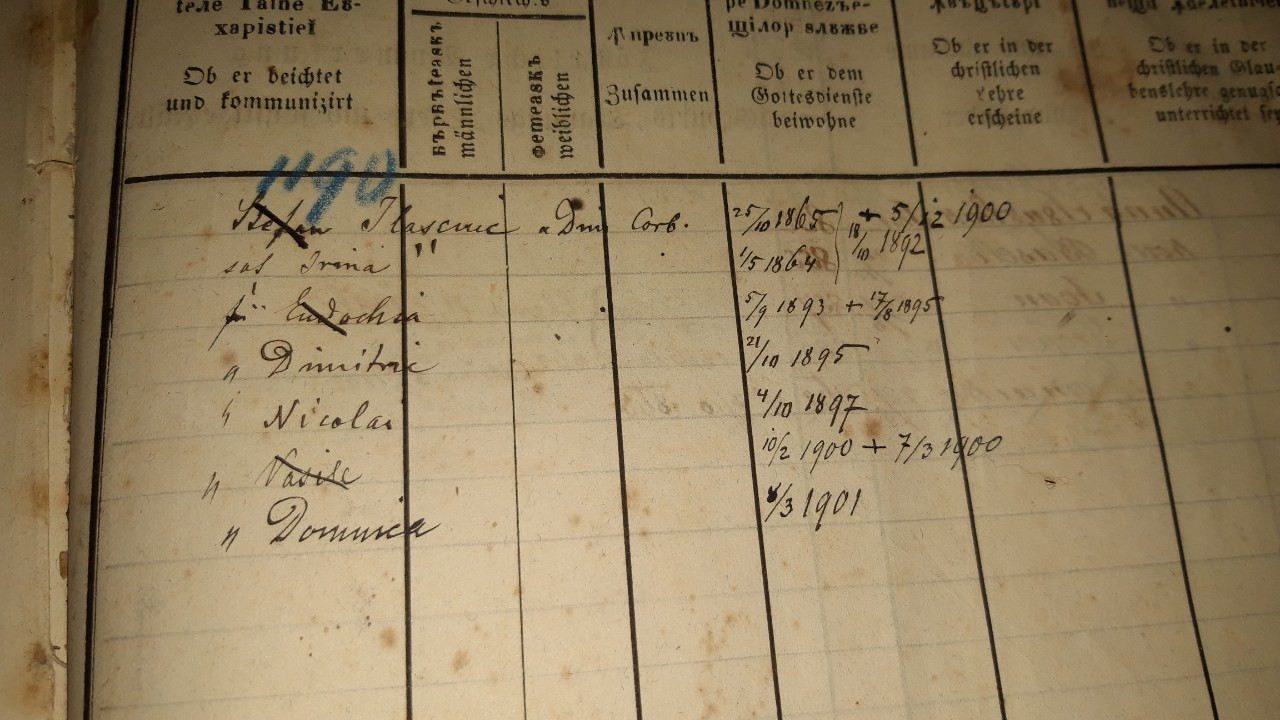 теле Таіне Ев-
харістіеĭ
Ob er beichtet
und kommunizirt
бърбътеаскъ
männlichen
фетеаскъ
weiblichen
Ꙟпреꙋнъ
Zusammen
ре Domnezъe-
щіlор
Ob er dem
Gottesdienste
beiwohne
Ob er in der
christlichen
Lehre
erscheine
Ob er in der
christlichen Glau-
benslehre genugsa
unterrichtet sei
"90
Stefan a Dmi Corb. 25/10 1865 + 5/12 1900
18/10 1892
Irina " 1/5 1864
Eudochia 5/9 1893 + 17/8 1895
" Dimitrie 21/10 1895
" Nicolai 4/10 1897
" Vasile 10/2 1900 + 7/3 1900
" Domnica /3 1901